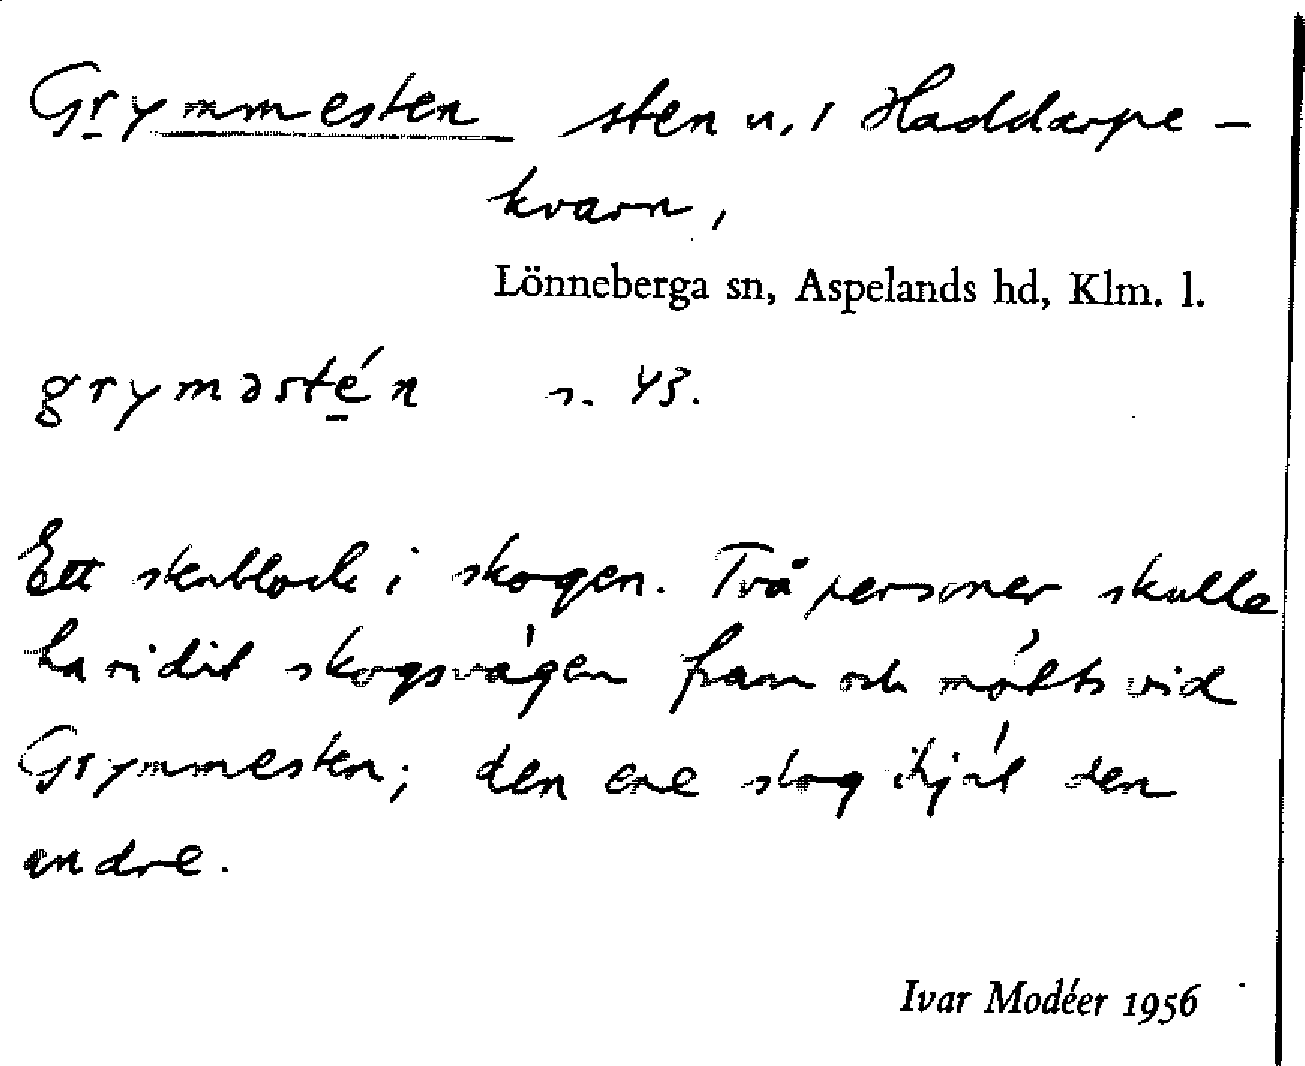 Grymmesten sten u. / Haddarpe-
kvarn,
Lönneberga sn, Aspelands hd, Klm. l.
grymǝstén s. 43.
Ett stenblock i skogen. Två personer skulle
ha ridit skogsvägen fram och mötts vid
Grymmesten; den ene slog ihjäl den
andre.
Ivar Modéer 1956